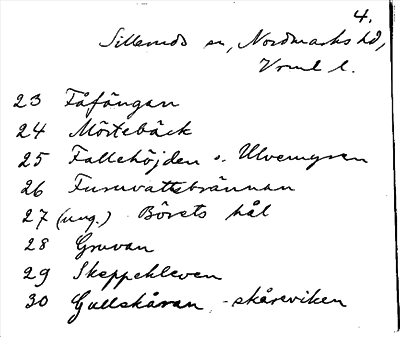 4.
Sillerud sn, Nordmarks hd,
Vrml l.
23 Fåfängan
24 Mörtebäck
25 Fallehöjden o. Ulvemyren
26 Furuvattsbrännan
27 (ung.) Börets hål
28 Gruvan
29 Skeppekleven
30 Gullskåran, -skåreviken